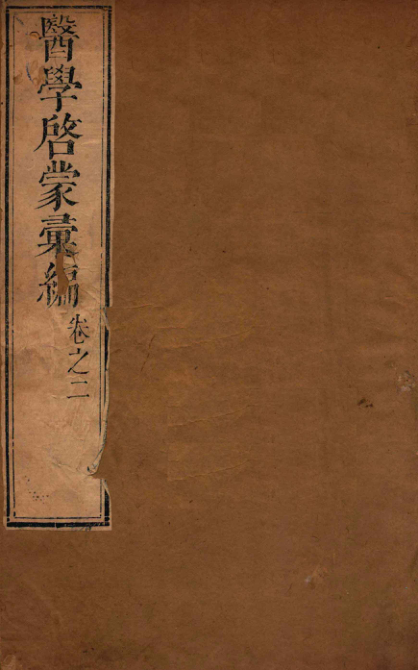 醫學啓蒙彙編卷之二